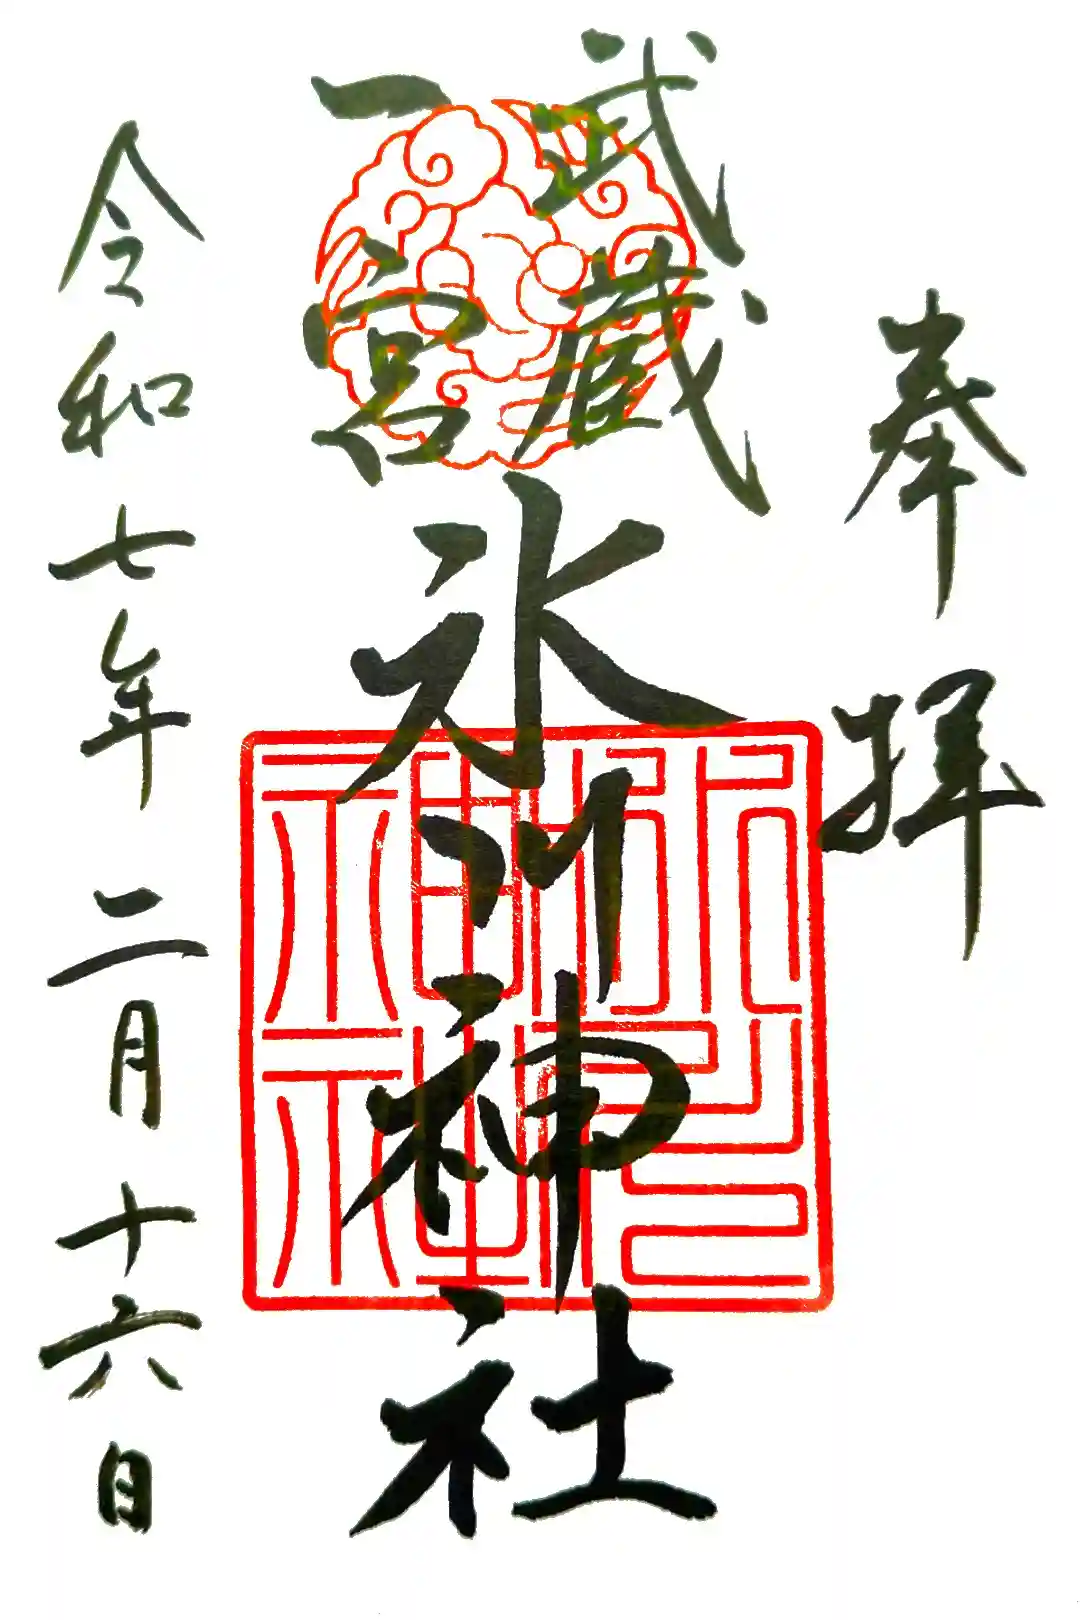 奉拝
武蔵
一宮
氷川神社
氷川神社
令和七年二月十六日